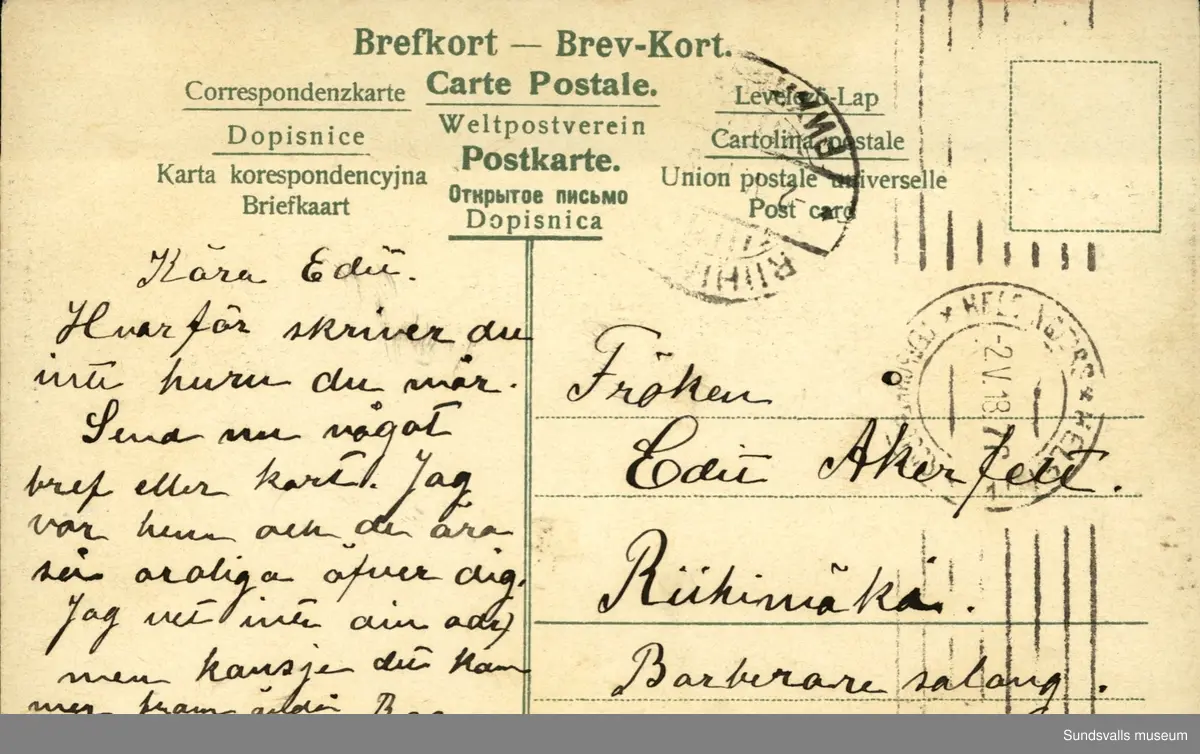 Brefkort — Brev-Kort.
Carte Postale.
Correspondenzkarte
Weltpostverein
Levelező-Lap
Dopisnice
Postkarte.
Cartolina postale
Karta korespondencyjna
Открытое письмо
Union postale universelle
Briefkaart
Dopisnica
Post card
Kära Edit.
Hvarför skriver du
inte huru du mår.
Send nu något
bref eller kort. Jag
var hem och de ära
så oroliga öfver dig.
Jag vet inte din adr)
men kansje det kom
mer fram ändå
Fröken
Edit Åkerfelt.
Riihimäki.
Barberare salong.
-2.V.18
Sundsvalls museum